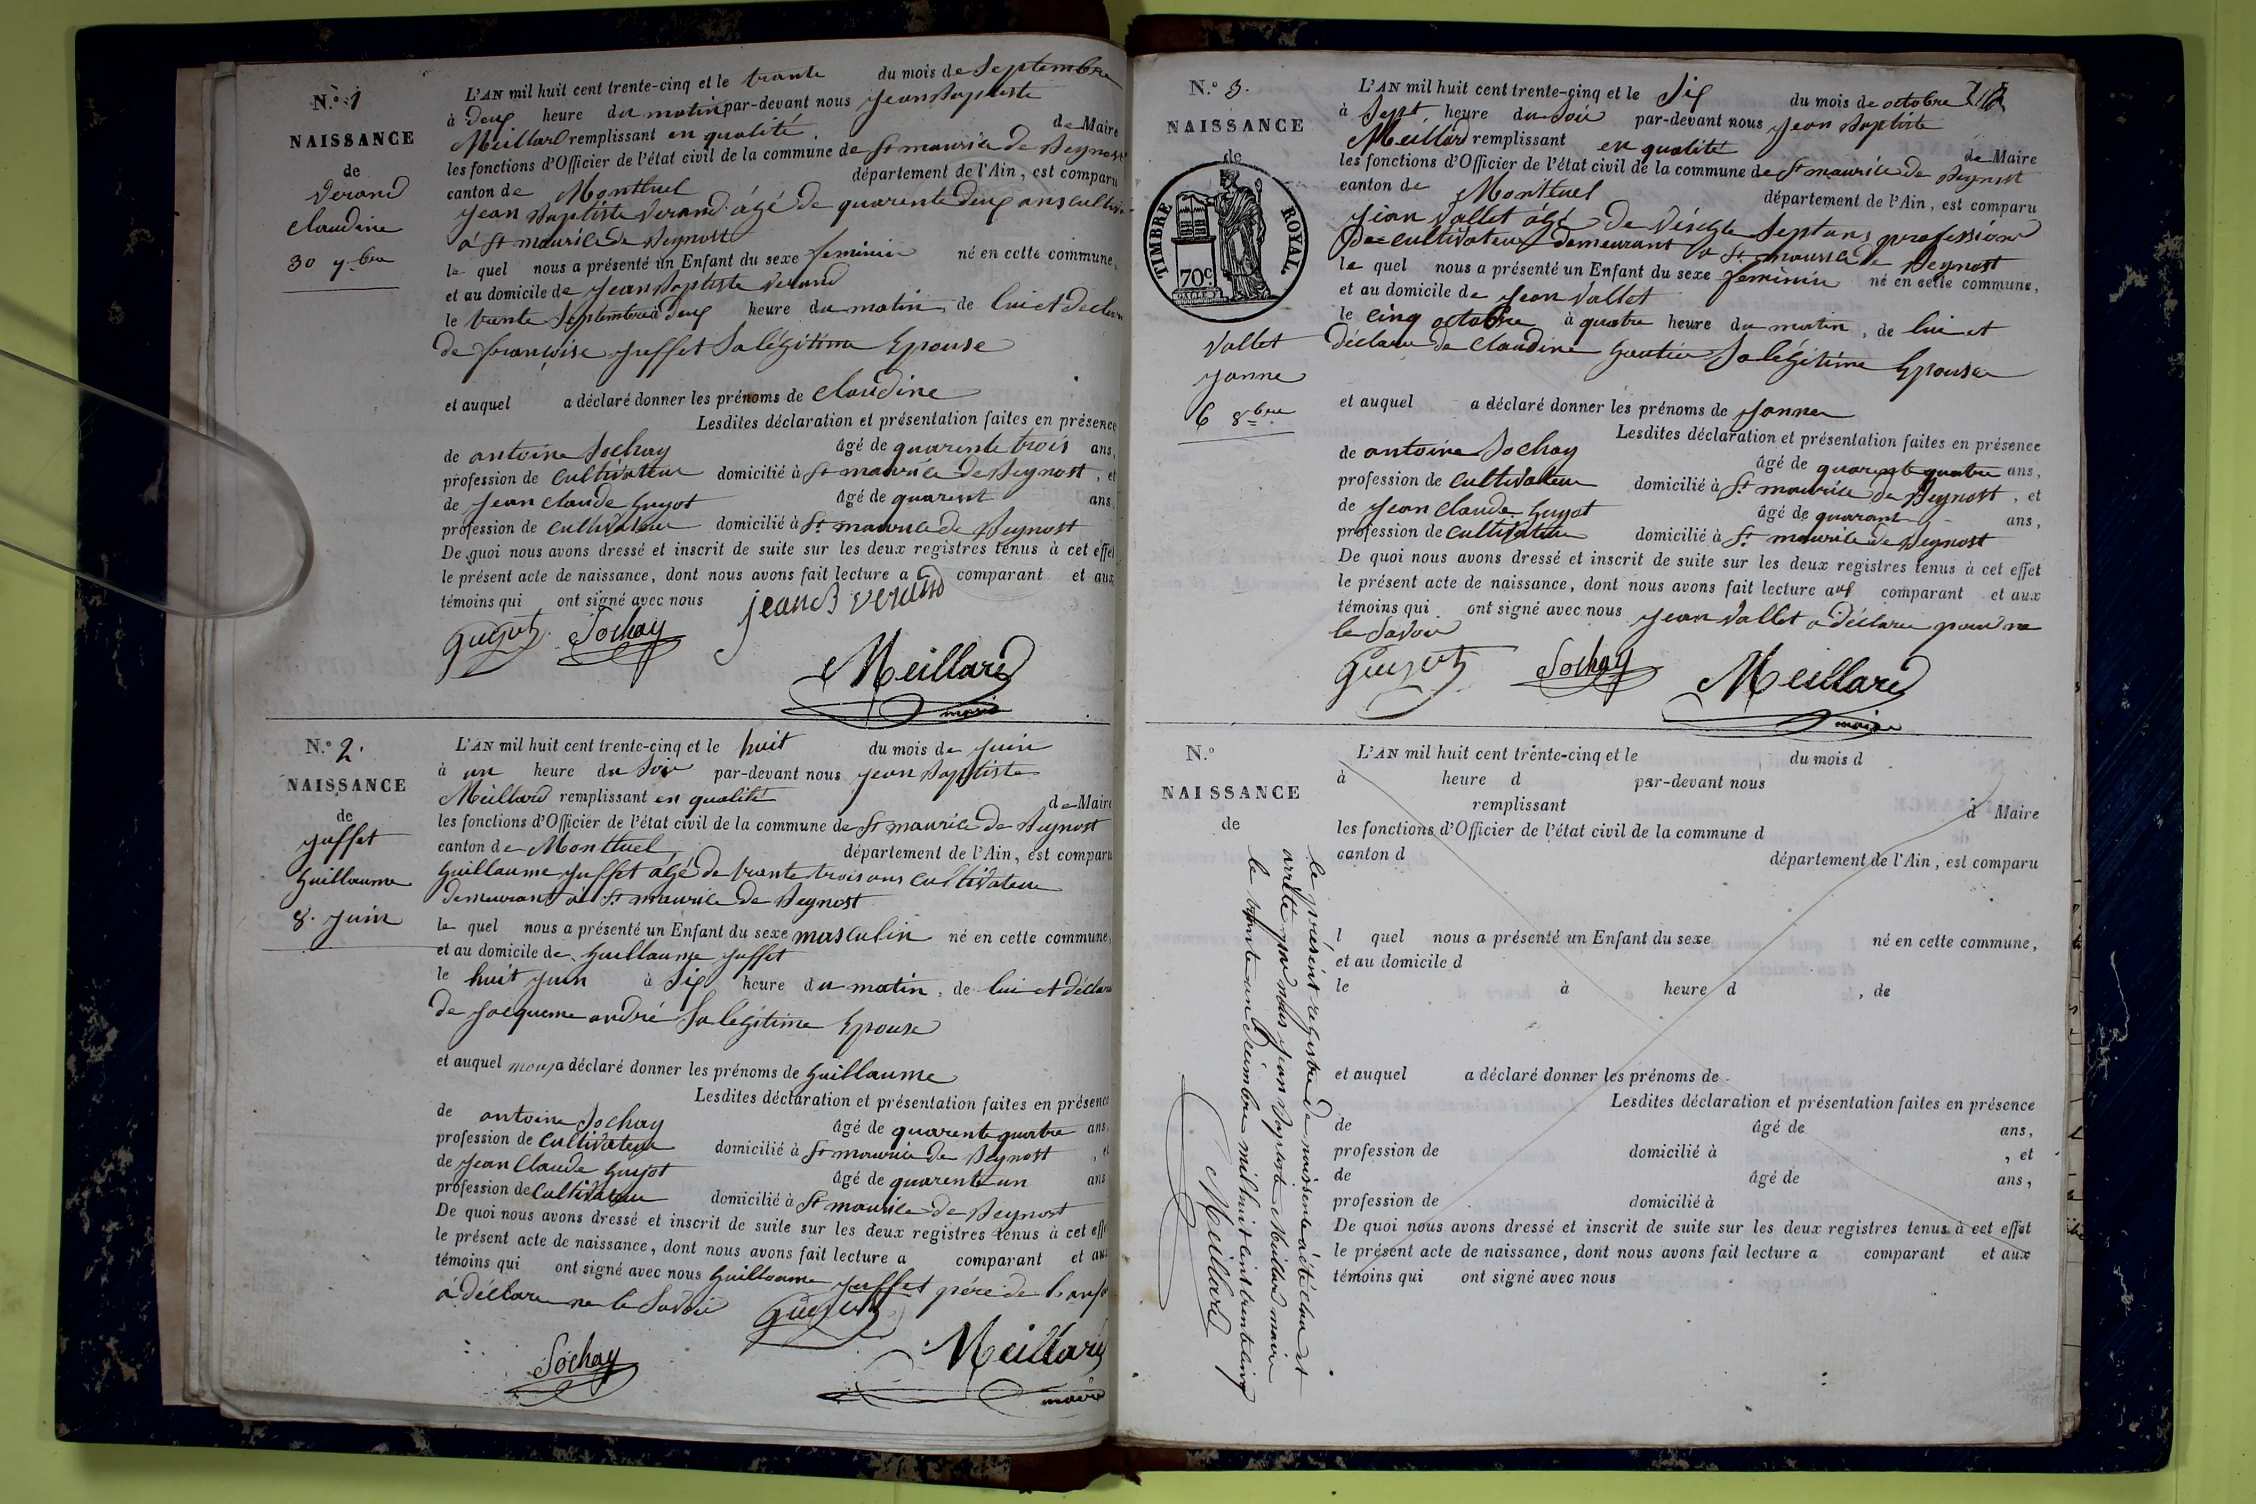 N.º 1
NAISSANCE
de
Verand
Claudine
30 7.bre
L'AN mil huit cent trente-cinq et le trente du mois de Septembre
à deux heure du matin par-devant nous Jean Baptiste
Meillard remplissant en qualité de Maire
les fonctions d'Officier de l'état civil de la commune de St maurice de Beynost
canton de Montluel département de l'Ain, est comparu
Jean Baptiste Verand âgé de quarente deux ans cultiv
à St maurice de Beynost
le quel nous a présenté un Enfant du sexe feminin né en cette commune,
et au domicile de Jean Baptiste Verand
le trente Septembre à deux heure du matin, de lui et declare
de françoise Juffet Sa légitime Epouse
et auquel a déclaré donner les prénoms de Claudine
Lesdites déclaration et présentation faites en présence
de antoine Sochay âgé de quarente trois ans,
profession de Cultivateur domicilié à St maurice de Beynost, et
de Jean Claude Guyot âgé de quarent ans,
profession de Cultivateur domicilié à St maurice de Beynost
De quoi nous avons dressé et inscrit de suite sur les deux registres tenus à cet effet
le présent acte de naissance, dont nous avons fait lecture a comparant et aux
témoins qui ont signé avec nous
jean B verand
Guyot Sochay
Meillard
maire
N.º 2.
NAISSANCE
de
Juffet
Guillaume
8. Juin
L'AN mil huit cent trente-cinq et le huit du mois de Juin
à un heure du Soir par-devant nous Jean Baptiste
Meillard remplissant en qualité de Maire
les fonctions d'Officier de l'état civil de la commune de St maurice de Beynost
canton de Montluel département de l'Ain, est comparu
Guillaume Juffet âgé de trente trois ans Cultivateur
demeurant à St maurice de Beynost
le quel nous a présenté un Enfant du sexe masculin né en cette commune,
et au domicile de Guillaume Juffet
le huit Juin à Six heure du matin, de lui et déclare
de Jacqueme andré Sa legitime Epouse
et auquel a déclaré donner les prénoms de Guillaume
Lesdites déclaration et présentation faites en présence
de antoine Sochay âgé de quarente quatre ans,
profession de Cultivateur domicilié à St maurice de Beynost, et
de Jean Claude Guyot âgé de quarente un ans
profession de Cultivateur domicilié à St maurice de Beynost
De quoi nous avons dressé et inscrit de suite sur les deux registres tenus à cet effe
le présent acte de naissance, dont nous avons fait lecture a comparant et aux
témoins qui ont signé avec nous Guillaume Juffet pére de l'anfa
à déclare ne le Savoir Guyot
Sochay
Meillard
maire
N.º 3.
NAISSANCE
de
TIMBRE ROYAL
70c
Vallet
Janne
6 8bre
L'AN mil huit cent trente-cinq et le Six du mois de octobre
à Sept heure du Soir par-devant nous Jean Baptiste
Meillard remplissant en qualité de Maire
les fonctions d'Officier de l'état civil de la commune de St maurice de Beynost
canton de Montluel département de l'Ain, est comparu
Jean Vallet âgé de Vingte Sept ans profession
de Cultivateur demeurant à St maurice de Beynost
le quel nous a présenté un Enfant du sexe feminin né en cette commune,
et au domicile de Jean Vallet
le Cinq octobre à quatre heure du matin, de lui et
déclare de Claudine Gautier Sa légitime Epouse
et auquel a déclaré donner les prénoms de Janne
Lesdites déclaration et présentation faites en présence
de antoine Sochay âgé de quarente quatre ans,
profession de Cultivateur domicilié à St maurice de Beynost, et
de Jean Claude Guyot âgé de quarant ans,
profession de Cultivateur domicilié à St maurice de Beynost
De quoi nous avons dressé et inscrit de suite sur les deux registres tenus à cet effet
le présent acte de naissance, dont nous avons fait lecture aux comparant et aux
témoins qui ont signé avec nous Jean Vallet a déclare pour ne
le Savoir
Guyot Sochay Meillard
maire
N.º
NAISSANCE
de
L'AN mil huit cent trente-cinq et le du mois d
à heure d par-devant nous
remplissant d Maire
les fonctions d'Officier de l'état civil de la commune d
canton d département de l'Ain, est comparu
l quel nous a présenté un Enfant du sexe né en cette commune,
et au domicile d
le à heure d , de
et auquel a déclaré donner les prénoms de
Lesdites déclaration et présentation faites en présence
de âgé de ans,
profession de domicilié à , et
de âgé de ans,
profession de domicilié à
De quoi nous avons dressé et inscrit de suite sur les deux registres tenus à cet effet
le présent acte de naissance, dont nous avons fait lecture a comparant et aux
témoins qui ont signé avec nous
le présent registre de naissente à été clau et
arrêté par nous Jean Baptiste Meillard maire
le trente un décimbre mil huit cent trente cinq
Meillard